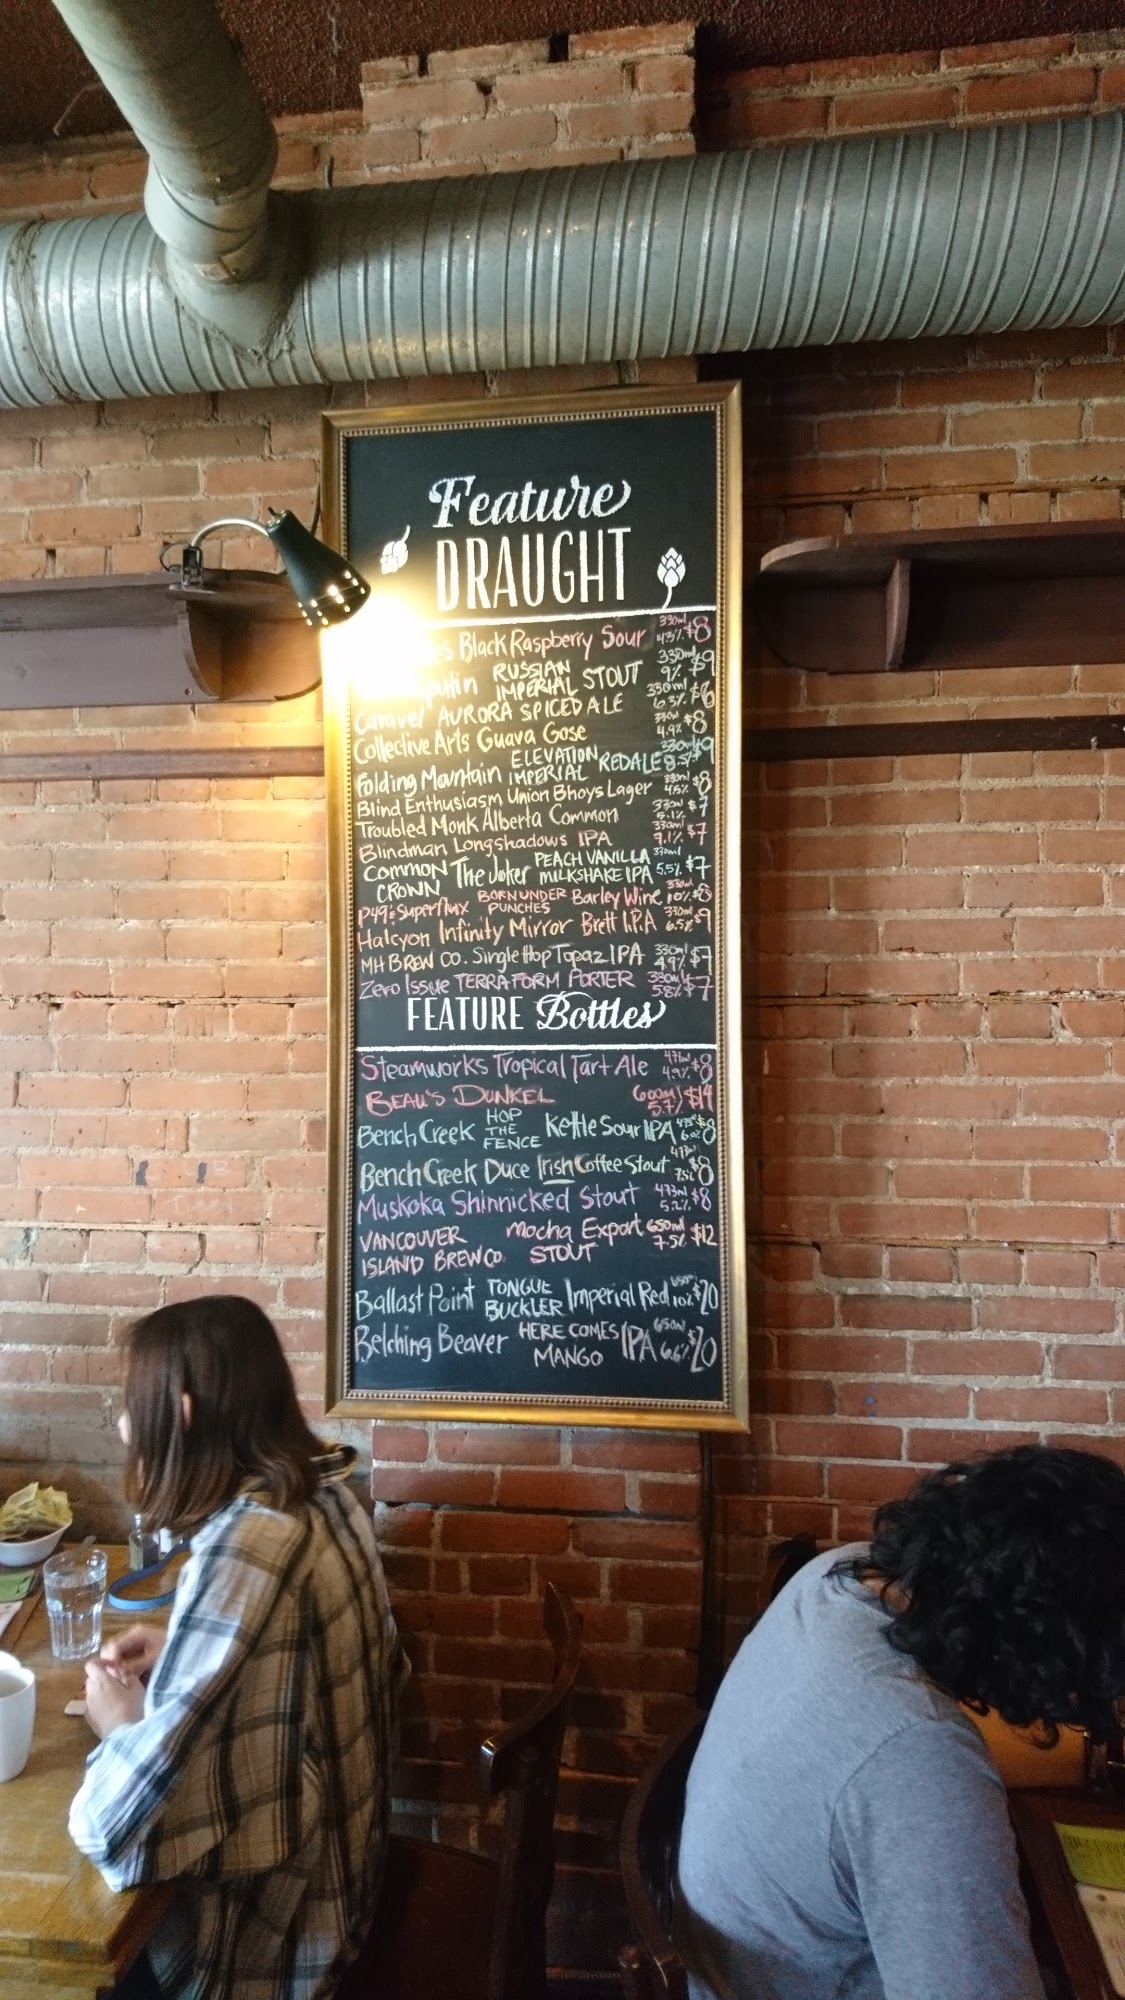 Feature
DRAUGHT
Black Raspberry Sour 330ml 4.3% $8
RUSSIAN IMPERIAL STOUT 330ml 9% $9
Caravel AURORA SPICED ALE 330ml 6.3% $6
Collective Arts Guava Gose 330ml 4.9% $8
Folding Mountain ELEVATION IMPERIAL RED ALE 330ml 8.5% $9
Blind Enthusiasm Union Bhoys Lager 330ml 4.5% $8
Troubled Monk Alberta Common 330ml 5.1% $7
Blindman Longshadows IPA 330ml 7.1% $7
COMMON CROWN The Joker PEACH VANILLA MILKSHAKE IPA 330ml 5.5% $7
P49 & Superflux BORN UNDER PUNCHES Barley Wine 330ml 10% $8
Halcyon Infinity Mirror Brett I.P.A 330ml 6.5% $9
MH BREW CO. Single Hop Topaz IPA 330ml 4.9% $7
Zero Issue TERRAFORM PORTER 330ml 5.8% $7
FEATURE Bottles
Steamworks Tropical Tart Ale 473ml 4.9% $8
BEAU'S DUNKEL 600ml 5.7% $14
Bench Creek HOP THE FENCE Kettle Sour IPA 473ml $8
Bench Creek Duce Irish Coffee Stout 473ml 7.5% $8
Muskoka Shinnicked Stout 473ml 5.2% $8
VANCOUVER ISLAND BREW CO. Mocha Export STOUT 650ml 7.5% $12
Ballast Point TONGUE BUCKLER Imperial Red 650ml 10% $20
Belching Beaver HERE COMES MANGO IPA 650ml 6.6% $20